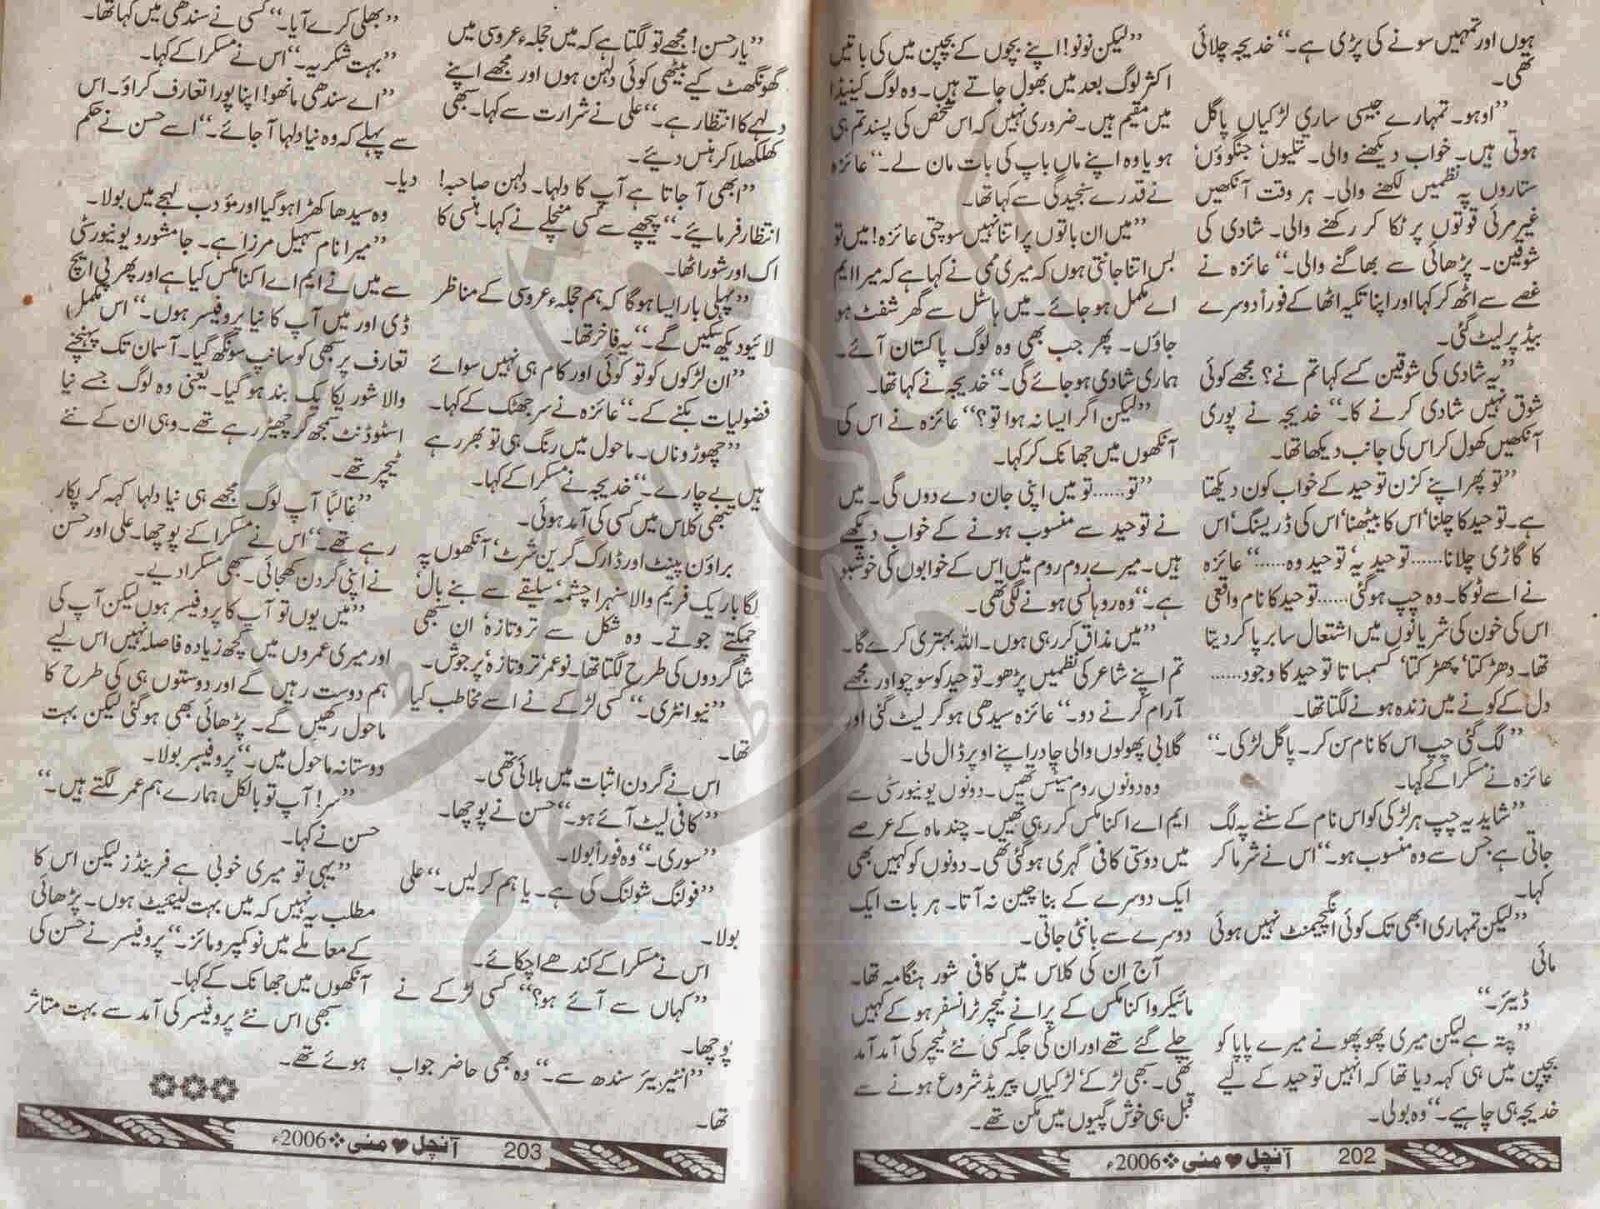 ہوں اور تمہیں سونے کی پڑی ہے۔“ خدیجہ چلائی
تھی۔
”اوہو۔ تمہارے جیسی ساری لڑکیاں پاگل
ہوتی ہیں۔ خواب دیکھنے والی۔ تتلیوں‘ جگنوؤں‘
ستاروں پہ نظمیں لکھنے والی۔ ہر وقت آنکھیں
غیر مرئی قوتوں پر ٹکا کر رکھنے والی۔ شادی کی
شوقین۔ پڑھائی سے بھاگنے والی۔“ عائزہ نے
غصے سے اٹھ کر کہا اور اپنا تکیہ اٹھا کے فوراً دوسرے
بیڈ پر لیٹ گئی۔
”یہ شادی کی شوقین کسے کہا تم نے؟ مجھے کوئی
شوق نہیں شادی کرنے کا۔“ خدیجہ نے پوری
آنکھیں کھول کر اس کی جانب دیکھا تھا۔
”تو پھر اپنے کزن توحید کے خواب کون دیکھتا
ہے۔ توحید کا چلنا‘ اس کا بیٹھنا‘ اس کی ڈریسنگ‘ اس
کا گاڑی چلانا...... توحید یہ‘ توحید وہ......“ عائزہ
نے اسے ٹوکا۔ وہ چپ ہوگئی...... توحید کا نام واقعی
اس کی خون کی شریانوں میں اشتعال سا برپا کر دیتا
تھا۔ دھڑکتا‘ پھڑکتا‘ کسمساتا توحید کا وجود......
دل کے کونے میں زندہ ہونے لگتا تھا۔
”لگ گئی چپ اس کا نام سن کر۔ پاگل لڑکی۔“
عائزہ نے مسکرا کے کہا۔
”شاید یہ چپ ہر لڑکی کو اس نام کے سننے پہ لگ
جاتی ہے جس سے وہ منسوب ہو۔“ اس نے شرما کر
کہا۔
”لیکن تمہاری ابھی تک کوئی انگیجمنٹ نہیں ہوئی
مائی
ڈیئر۔“
”پتہ ہے لیکن میری پھوپھو نے میرے پاپا کو
بچپن میں ہی کہہ دیا تھا کہ انہیں توحید کے لیے
خدیجہ ہی چاہیے۔“ وہ بولی۔
”لیکن نونو! اپنے بچوں کے بچپن میں کی باتیں
اکثر لوگ بعد میں بھول جاتے ہیں۔ وہ لوگ کینیڈا
میں مقیم ہیں۔ ضروری نہیں کہ اس شخص کی پسند تم ہی
ہو یا وہ اپنے ماں باپ کی بات مان لے۔“ عائزہ
نے قدرے سنجیدگی سے کہا تھا۔
”میں ان باتوں پر اتنا نہیں سوچتی عائزہ! میں تو
بس اتنا جانتی ہوں کہ میری ممی نے کہا ہے کہ میرا ایم
اے مکمل ہو جائے۔ میں ہاسٹل سے گھر شفٹ ہو
جاؤں۔ پھر جب بھی وہ لوگ پاکستان آئے۔
ہماری شادی ہو جائے گی۔“ خدیجہ نے کہا تھا۔
”لیکن اگر ایسا نہ ہوا تو؟“ عائزہ نے اس کی
آنکھوں میں جھانک کر کہا۔
”تو...... تو میں اپنی جان دے دوں گی۔ میں
نے توحید سے منسوب ہونے کے خواب دیکھے
ہیں۔ میرے روم روم میں اس کے خوابوں کی خوشبو
ہے۔“ وہ روہانسی ہونے لگی تھی۔
”میں مذاق کر رہی ہوں۔ اللہ بہتری کرے گا۔
تم اپنے شاعر کی نظمیں پڑھو۔ توحید کو سوچو اور مجھے
آرام کرنے دو۔“ عائزہ سیدھی ہو کر لیٹ گئی اور
گلابی پھولوں والی چادر اپنے اوپر ڈال لی۔
وہ دونوں روم میٹس تھیں۔ دونوں یونیورسٹی سے
ایم اے اکنامکس کر رہی تھیں۔ چند ماہ کے عرصے
میں دوستی کافی گہری ہوگئی تھی۔ دونوں کو کہیں بھی
ایک دوسرے کے بنا چین نہ آتا۔ ہر بات ایک
دوسرے سے بانٹی جاتی۔
آج ان کی کلاس میں کافی شور ہنگامہ تھا۔
مائیکرو اکنامکس کے پرانے ٹیچر ٹرانسفر ہو کے کہیں
چلے گئے تھے اور ان کی جگہ کسی نئے ٹیچر کی آمد آمد
تھی۔ سبھی لڑکے‘ لڑکیاں پیریڈ شروع ہونے سے
قبل ہی خوش گپیوں میں مگن تھے۔
آنچل ♥ مئی ❖ 2006ء 202
”یار حسن! مجھے تو لگتا ہے کہ میں حجلہء عروسی میں
گھونگھٹ کیے بیٹھی کوئی دلہن ہوں اور مجھے اپنے
دلہے کا انتظار ہے۔“ علی نے شرارت سے کہا۔ سبھی
کھلکھلا کر ہنس دیئے۔
”ابھی آ جاتا ہے آپ کا دلہا۔ دلہن صاحبہ!
انتظار فرمائیے۔“ پیچھے سے کسی منچلے نے کہا۔ ہنسی کا
اک اور شور اٹھا۔
”پہلی بار ایسا ہوگا کہ ہم حجلہء عروسی کے مناظر
لائیو دیکھ سکیں گے۔“ یہ فاخر تھا۔
”ان لڑکوں کو تو کوئی اور کام ہی نہیں سوائے
فضولیات بکنے کے۔“ عائزہ نے سر جھٹک کے کہا۔
”چھوڑو ناں۔ ماحول میں رنگ ہی تو بھر رہے
ہیں بے چارے۔“ خدیجہ نے مسکرا کے کہا۔
تبھی کلاس میں کسی کی آمد ہوئی۔
براؤن پینٹ اور ڈارک گرین شرٹ‘ آنکھوں پہ
لگا باریک فریم والا سنہرا چشمہ‘ سلیقے سے بنے بال‘
چمکتے جوتے۔ وہ شکل سے تروتازہ‘ ان سبھی
شاگردوں کی طرح لگتا تھا۔ نوعمر‘ تروتازہ‘ پرجوش۔
”نیو انٹری۔“ کسی لڑکے نے اسے مخاطب کیا
تھا۔
اس نے گردن اثبات میں ہلائی تھی۔
”کافی لیٹ آئے ہو۔“ حسن نے پوچھا۔
”سوری۔“ وہ فوراً بولا۔
”فولنگ شولنگ کی ہے۔ یا ہم کر لیں۔“ علی
بولا۔
اس نے مسکرا کے کندھے اچکائے۔
”کہاں سے آئے ہو؟“ کسی لڑکے نے
پوچھا۔
”انٹیریئر سندھ سے۔“ وہ بھی حاضر جواب
تھا۔
”بھلی کرے آیا۔“ کسی نے سندھی میں کہا تھا۔
”بہت شکریہ۔“ اس نے مسکرا کے کہا۔
”اے سندھی مانھو! اپنا پورا تعارف کراؤ۔ اس
سے پہلے کہ وہ نیا دلہا آ جائے۔“ اسے حسن نے حکم
دیا۔
وہ سیدھا کھڑا ہو گیا اور مؤدب لہجے میں بولا۔
”میرا نام سہیل مرزا ہے۔ جامشورو یونیورسٹی
سے میں نے ایم اے اکنامکس کیا ہے اور پھر پی ایچ
ڈی اور میں آپ کا نیا پروفیسر ہوں۔“ اس مکمل
تعارف پر سبھی کو سانپ سونگھ گیا۔ آسمان تک پہنچنے
والا شور یکایک بند ہو گیا۔ یعنی وہ لوگ جسے نیا
اسٹوڈنٹ سمجھ کر چھیڑ رہے تھے۔ وہی ان کے نئے
ٹیچر تھے۔
”غالباً آپ لوگ مجھے ہی نیا دلہا کہہ کر پکار
رہے تھے۔“ اس نے مسکرا کے پوچھا۔ علی اور حسن
نے اپنی گردن کھجائی۔ سبھی مسکرا دیے۔
”میں یوں تو آپ کا پروفیسر ہوں لیکن آپ کی
اور میری عمروں میں کچھ زیادہ فاصلہ نہیں اس لیے
ہم دوست رہیں گے اور دوستوں ہی کی طرح کا
ماحول رکھیں گے۔ پڑھائی بھی ہوگی لیکن بہت
دوستانہ ماحول میں۔“ پروفیسر بولا۔
”سر! آپ تو بالکل ہمارے ہم عمر لگتے ہیں۔“
حسن نے کہا۔
”یہی تو میری خوبی ہے فرینڈز لیکن اس کا
مطلب یہ نہیں کہ میں بہت لینیئنٹ ہوں۔ پڑھائی
کے معاملے میں نو کمپرومائز۔“ پروفیسر نے حسن کی
آنکھوں میں جھانک کے کہا۔
سبھی اس نئے پروفیسر کی آمد سے بہت متاثر
ہوئے تھے۔
آنچل ♥ مئی ❖ 2006ء 203